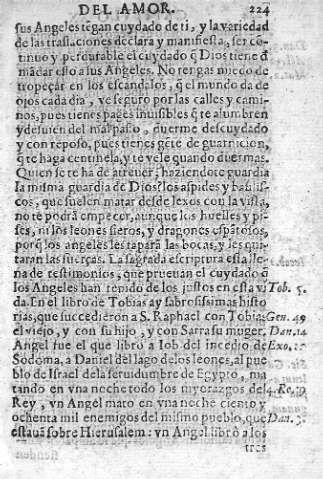 DEL AMOR. 224
sus Angeles tẽgan cuydado de ti, y la variedad
de las traslaciones declara y manifiesta, ser cõ
tinuo y perdurable el cuydado q̃ Dios tiene d̃
mãdar esto a sus Angeles. No tengas miedo de
tropeçar en los escandalos, q̃ el mundo da de
ojos cada dia, ve seguro por las calles y cami-
nos, pues tienes pages inuisibles q̃ te alumbren
y desuien del mal passo, duerme descuydado
y con reposo, pues tienes gẽte de guarnicion,
q̃ te haga centinela, y te vele quando duermas.
Quien se te ha de atreuer, haziendote guardia
la misma guardia de Dios? los aspides y basilis-
cos, que suelen matar desde lexos con la vista,
no te podrã empecer, aunque los huelles y pi-
ses, ni los leones fieros, y dragones espãtosos,
porq̃ los angeles les taparã las bocas, y les qui-
taran las fuerças. La sagrada escriptura esta lle-
na de testimonios, que prueuan el cuydado q̃
los Angeles han tenido de los justos en esta vi Tob. 5.
da. En el libro de Tobias ay sabrosissimas histo
rias, que succedieron a S. Raphael con Tobias Gen. 49
el viejo, y con su hijo, y con Sarra su muger. Dan. 14
Angel fue el que librò a Lob del incẽdio de Exo. 12
Sodoma, a Daniel del lago de los leones, al pue
blo de Israel dela seruidumbre de Egypto, ma
tando en vna noche todo los mayorazgos del 4. Re. 19
Rey, vn Angel mato en vna noche ciento y
ochenta mil enemigos del mismo pueblo, que Dan. 3.
estauã sobre Hierusalem: vn Angel librò a los
tres